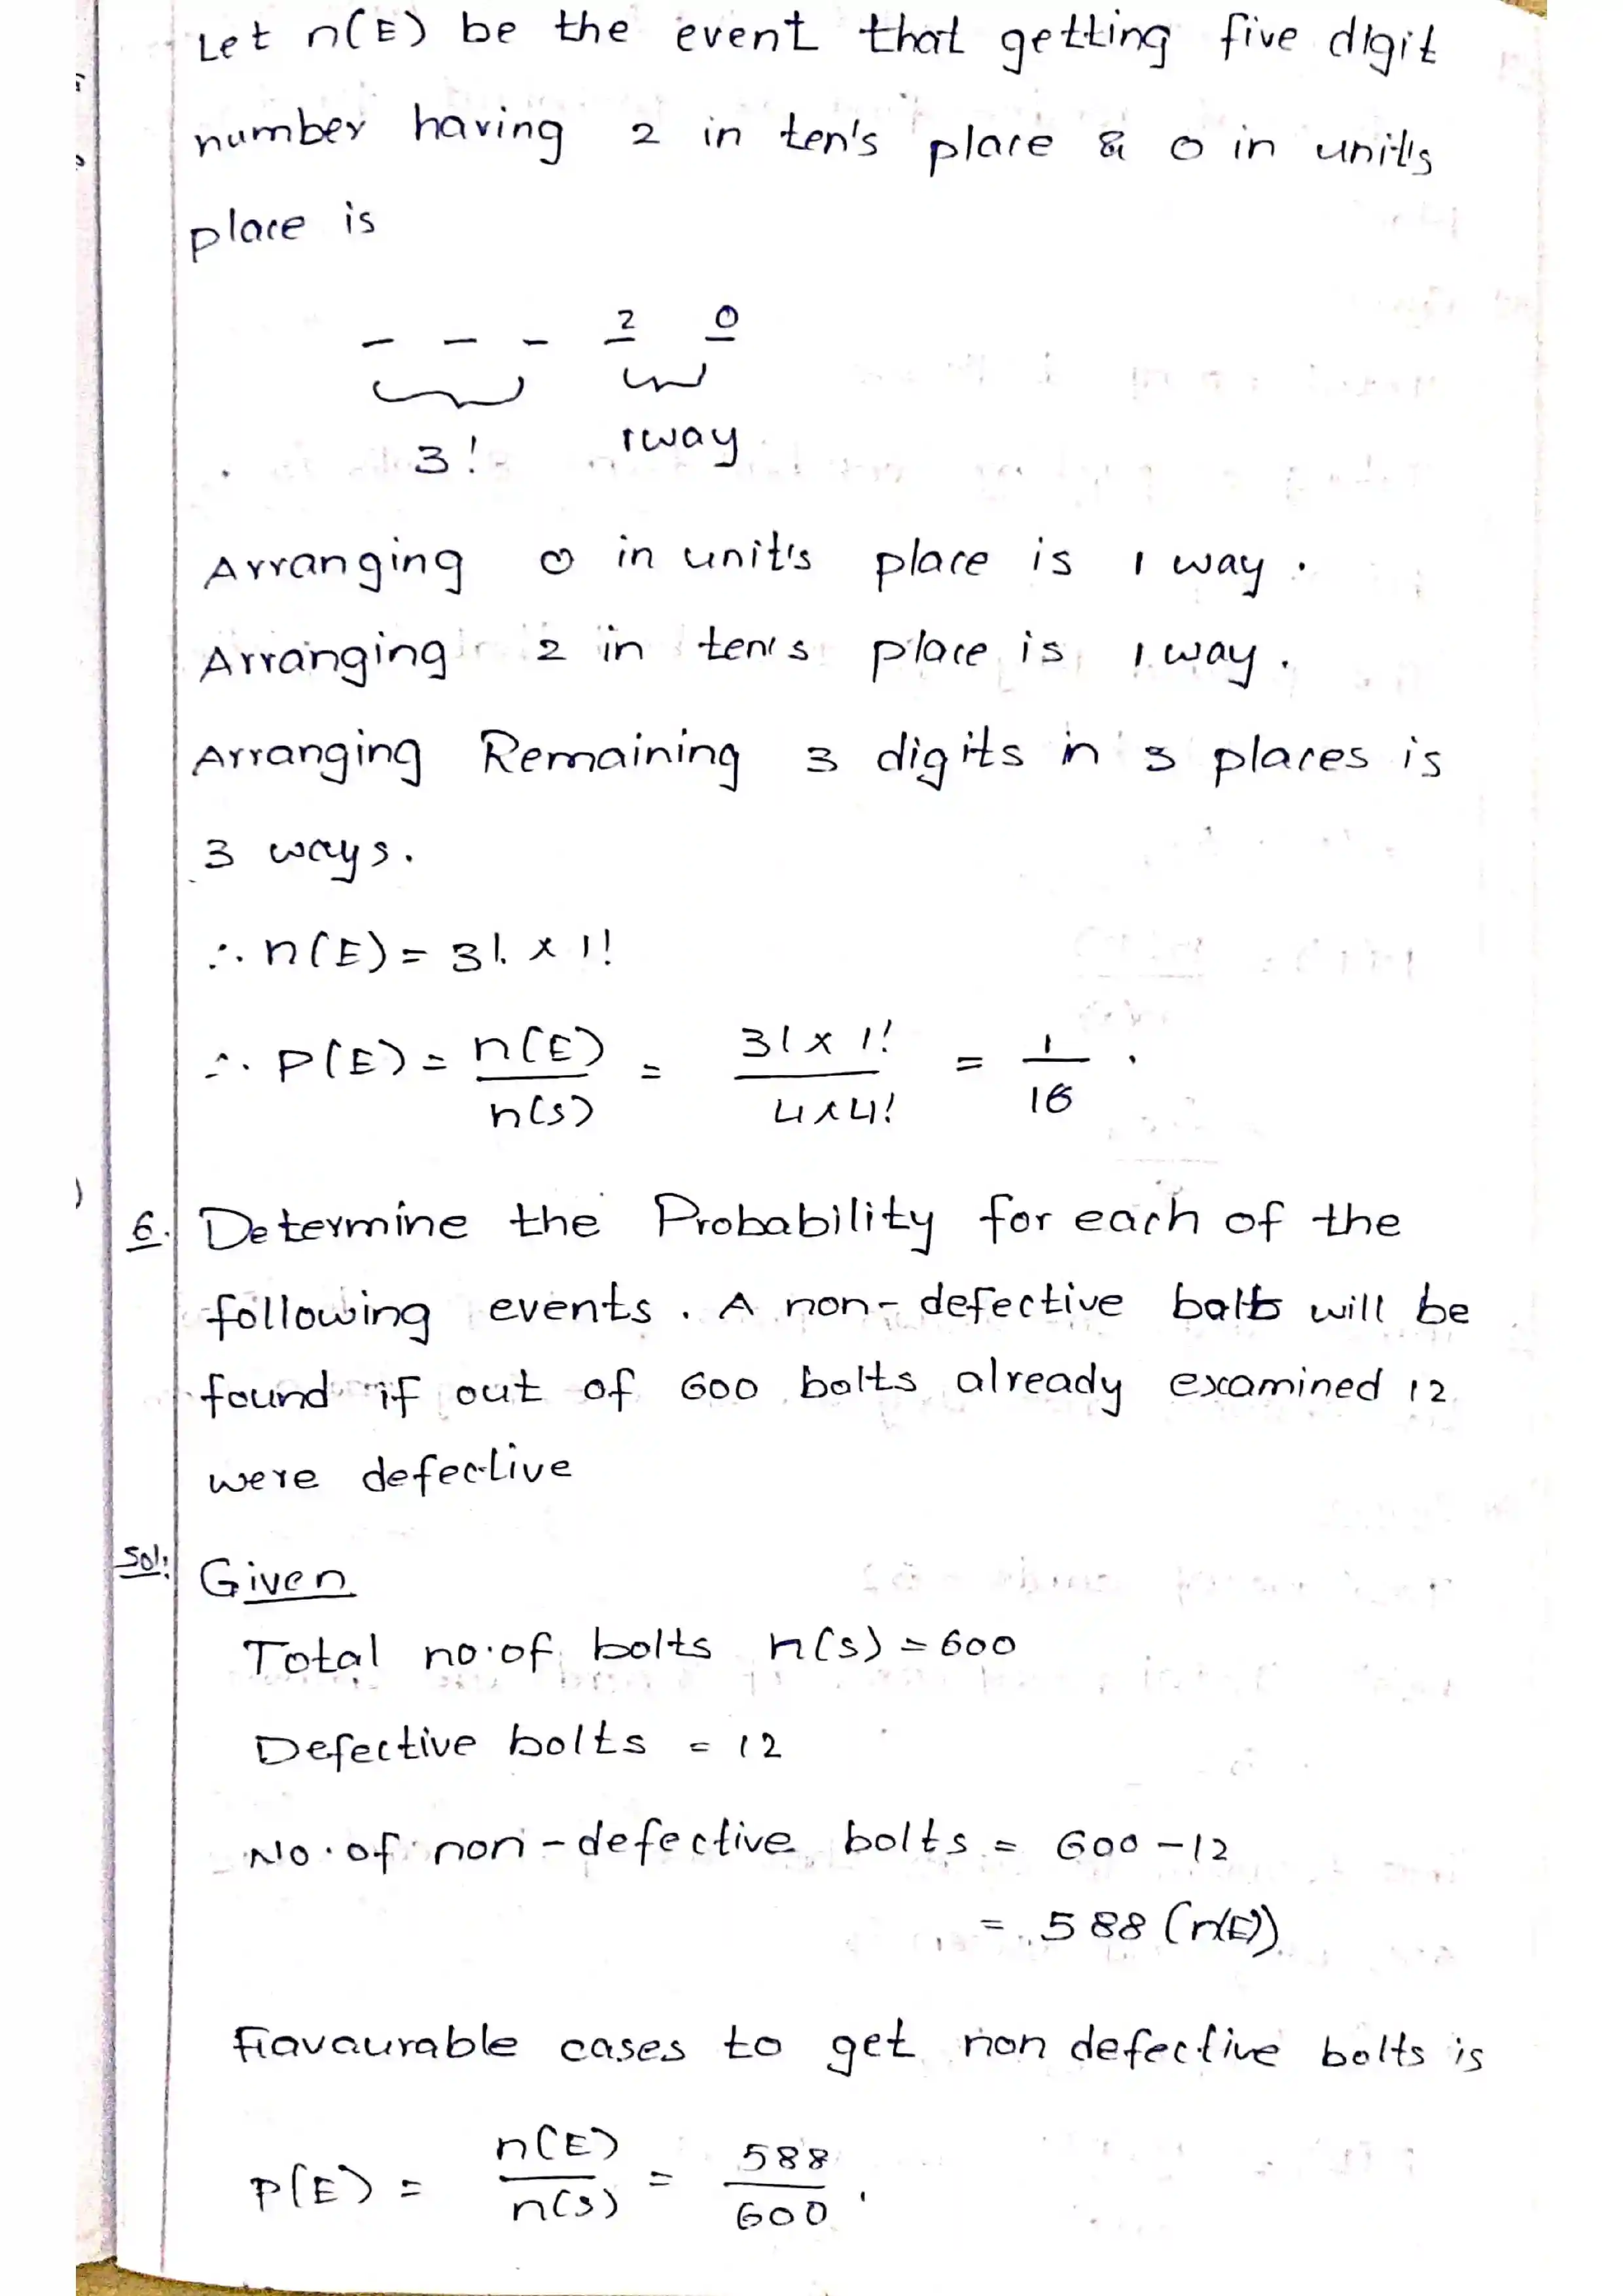 Let n(E) be the event that getting five digit
number having 2 in ten's place & 0 in unit's
place is
_ _ _ 2 0
3! 1 way
Arranging 0 in unit's place is 1 way.
Arranging 2 in ten's place is 1 way.
Arranging Remaining 3 digits in 3 places is
3 ways.
∴ n(E) = 3! × 1!
∴ P(E) = n(E)/n(s) = 3! × 1!/4×4! = 1/16.
6. Determine the Probability for each of the
following events. A non-defective bolt will be
found if out of 600 bolts already examined 12
were defective
Sol: Given
Total no.of bolts n(s) = 600
Defective bolts = 12
No.of non-defective bolts = 600 - 12
= 588 (n(E))
Favaurable cases to get non defective bolts is
P(E) = n(E)/n(s) = 588/600.